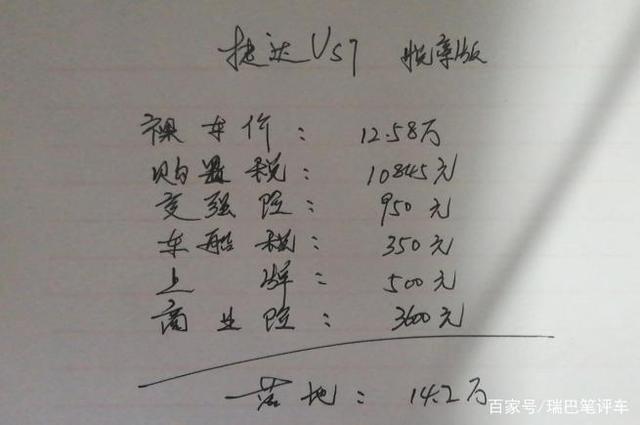 捷达VS7 悦享版
裸车价：12.58万
购置税：10845元
交强险：950元
车船税：350元
上牌：500元
商业险：3600元
落地：14.2万
百家号/瑞巴笔评车